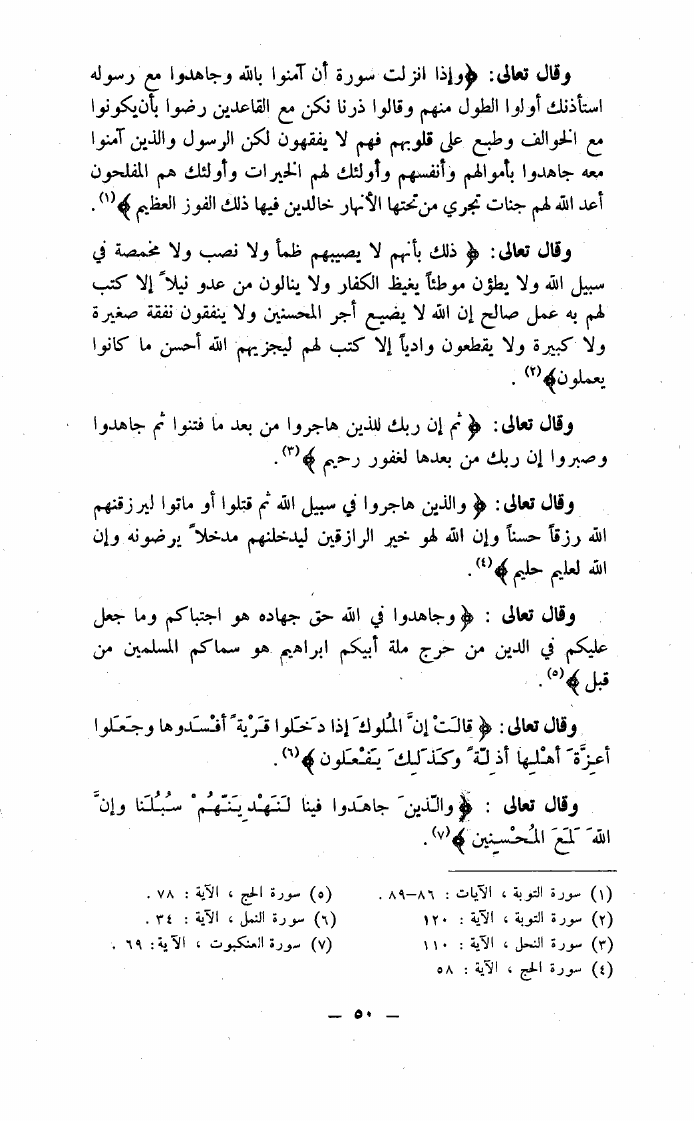 وقال تعالى : ﴿وإذا انزلت سورة أن آمنوا بالله وجاهدوا مع رسوله
استأذنك أولوا الطول منهم وقالوا ذرنا نكن مع القاعدين رضوا بأن يكونوا
مع الخوالف وطبع على قلوبهم فهم لا يفقهون لكن الرسول والذين آمنوا
معه جاهدوا بأموالهم وأنفسهم وأولئك لهم الخيرات وأولئك هم المفلحون
أعد الله لهم جنات تجري من تحتها الأنهار خالدين فيها ذلك الفوز العظيم ﴾(١).
وقال تعالى : ﴿ ذلك بأنهم لا يصيبهم ظمأ ولا نصب ولا مخمصة في
سبيل الله ولا يطؤن موطئاً يغيظ الكفار ولا ينالون من عدو نيلاً إلا كتب
لهم به عمل صالح إن الله لا يضيع أجر المحسنين ولا ينفقون نفقة صغيرة
ولا كبيرة ولا يقطعون وادياً إلا كتب لهم ليجزيهم الله أحسن ما كانوا
يعملون﴾(٢) .
وقال تعالى : ﴿ ثم إن ربك للذين هاجروا من بعد ما فتنوا ثم جاهدوا
وصبروا إن ربك من بعدها لغفور رحيم ﴾(٣).
وقال تعالى : ﴿ والذين هاجروا في سبيل الله ثم قتلوا أو ماتوا ليرزقنهم
الله رزقاً حسناً وإن الله لهو خير الرازقين ليدخلنهم مدخلاً يرضونه وإن
الله لعليم حليم ﴾(٤).
وقال تعالى : ﴿ وجاهدوا في الله حق جهاده هو اجتباكم وما جعل
عليكم في الدين من حرج ملة أبيكم ابراهيم هو سماكم المسلمين من
قبل ﴾(٥).
وقال تعالى : ﴿ قالَتْ إنَّ الملوكَ إذا دَخَلوا قَرْيةً أفْسَدوها وجَعَلوا
أعِزَّةَ أهْلِها أذِلّةً وكَذلِكَ يَفْعَلون ﴾(٦).
وقال تعالى : ﴿ والّذينَ جاهَدوا فينا لَنَهْدِيَنّهُمْ سُبُلَنا وإنَّ
اللهَ لَمَعَ المُحْسِنِين ﴾(٧).
(١) سورة التوبة ، الآيات : ٨٦–٨٩ .
(٢) سورة التوبة ، الآية : ١٢٠
(٣) سورة النحل ، الآية : ١١٠
(٤) سورة الحج ، الآية : ٥٨
(٥) سورة الحج ، الآية : ٧٨ .
(٦) سورة النمل ، الآية : ٣٤ .
(٧) سورة العنكبوت ، الآية : ٦٩ .
– ٥٠ –